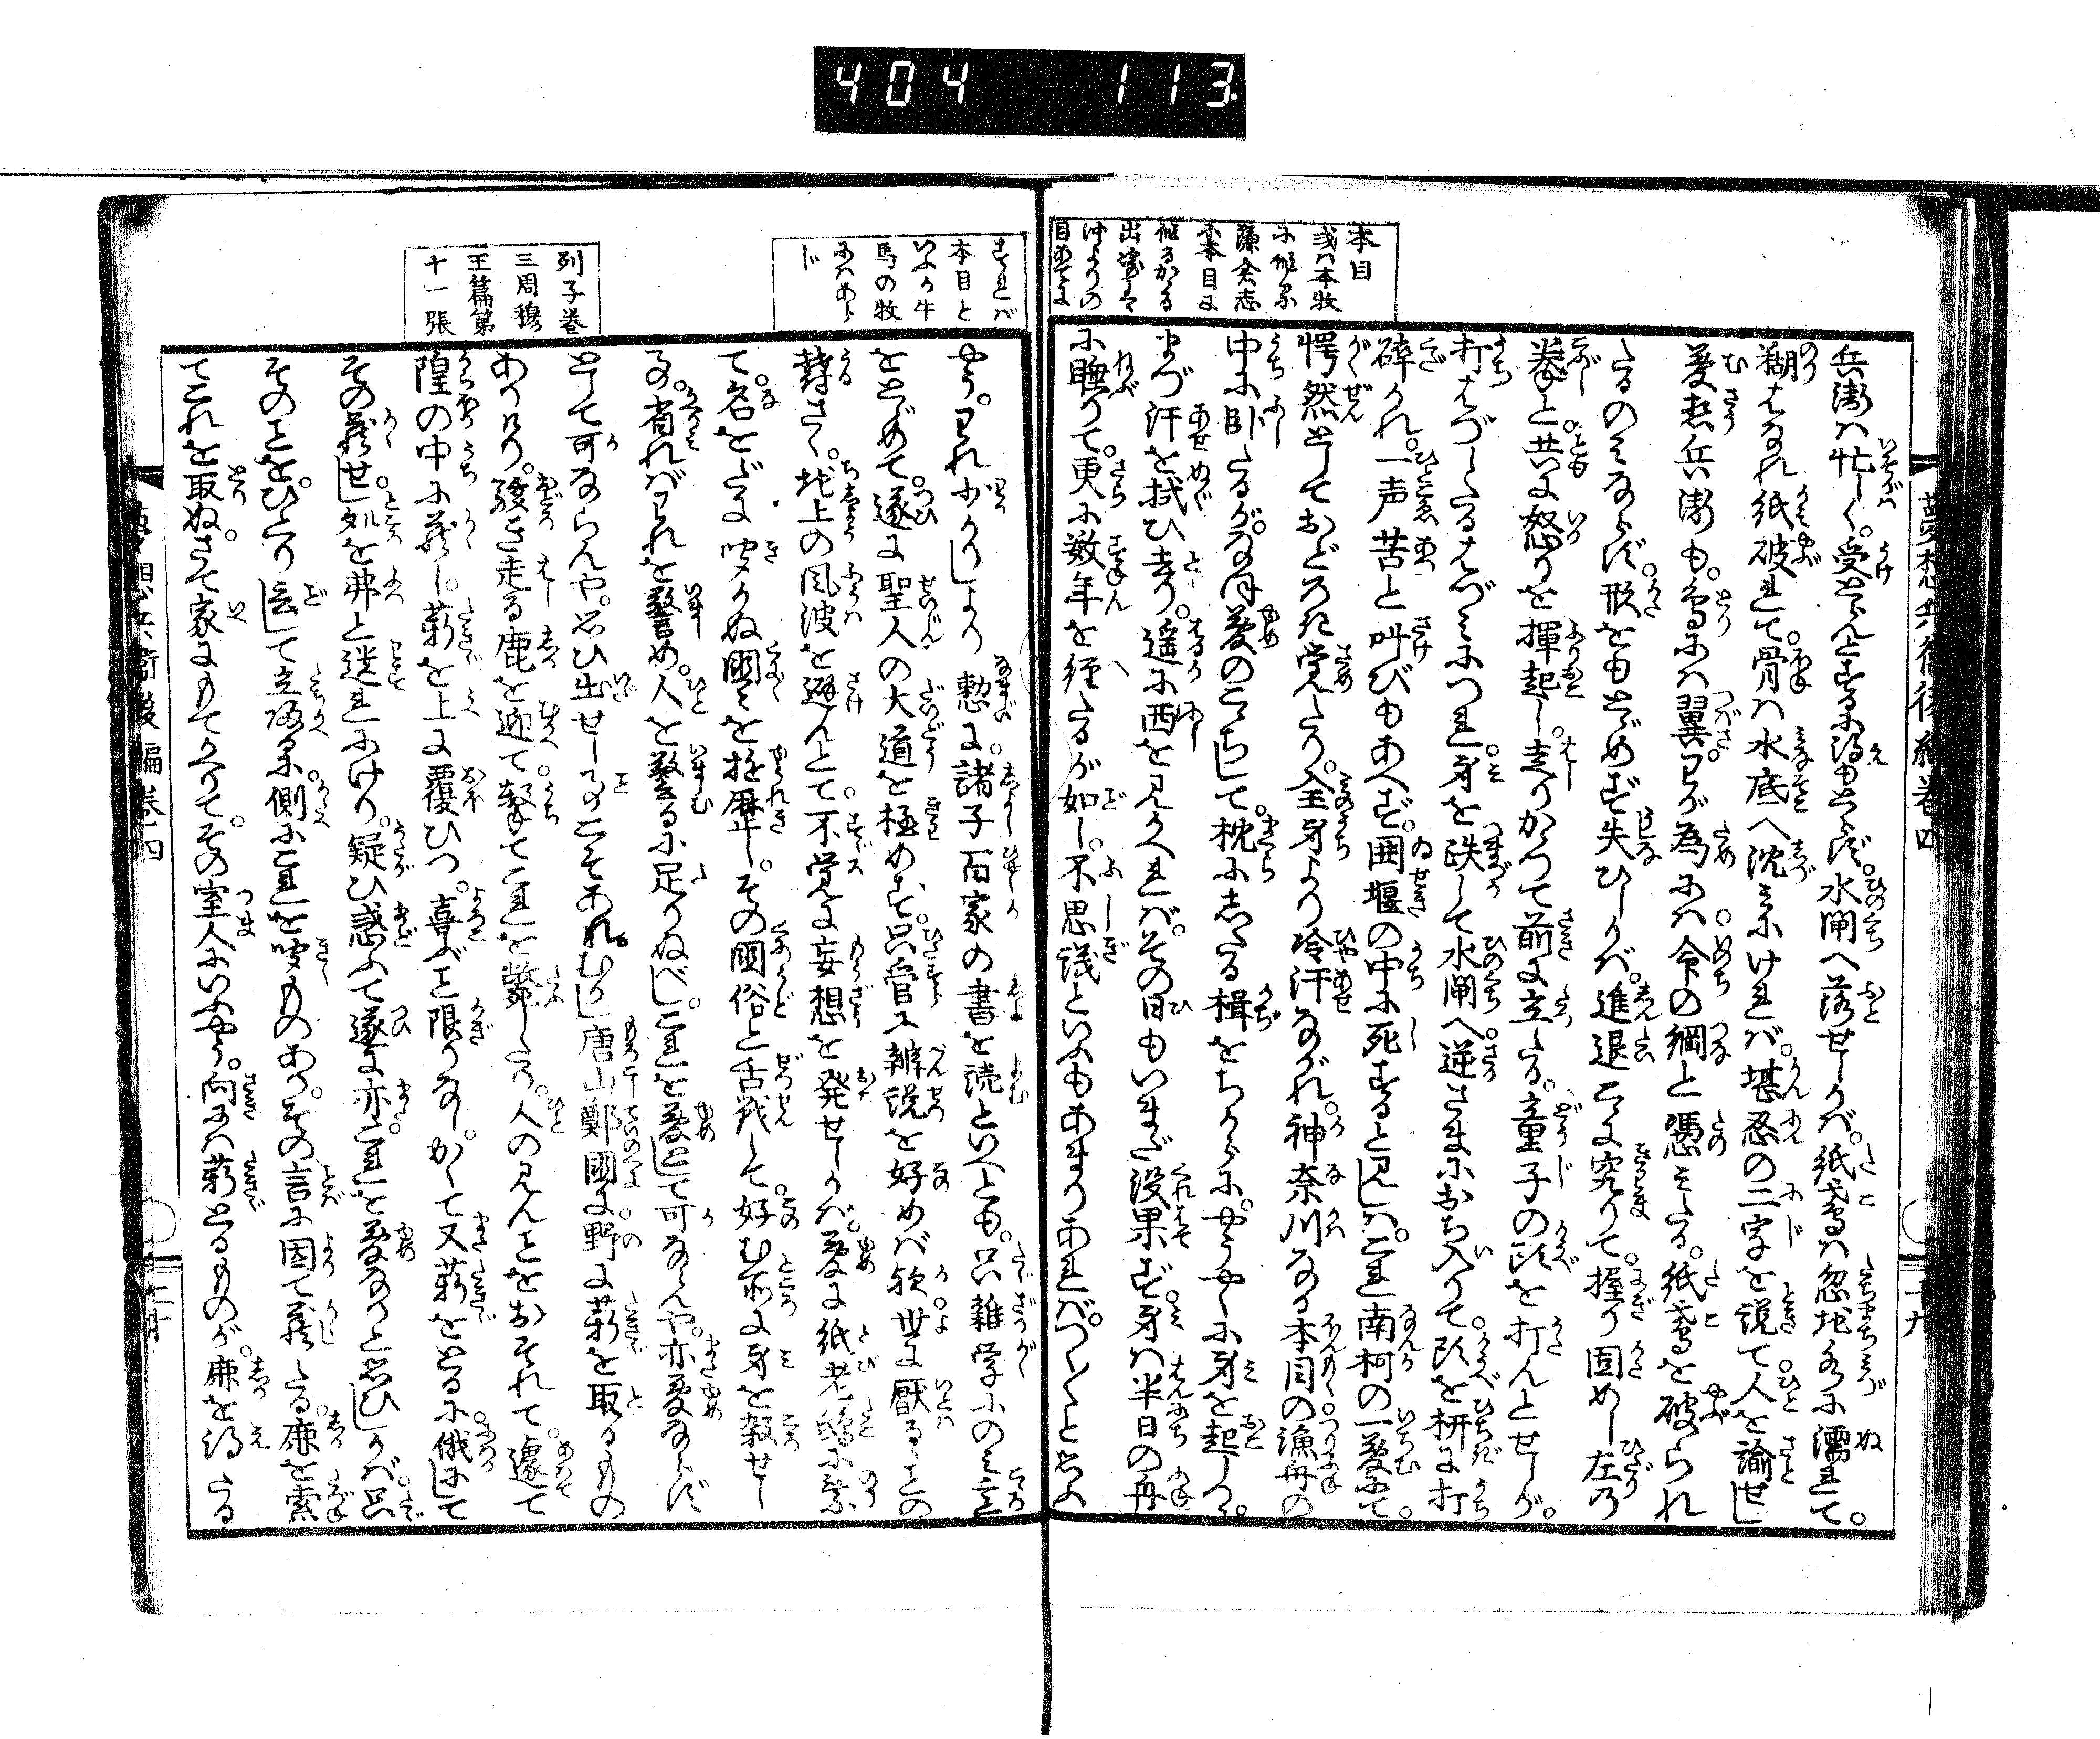 404 113.
本目
或ハ本牧
に作る
鎌倉志
に本目に
作るかる
出崎を
沖よりの
目あてに
兵衛ハ忙しく。受とらんとするに得もとらず。水閘へ落せしかバ。紙鳶ハ忽地水に濡れて。
糊はなれ紙破れて。骨ハ水底へ沈みにけれバ。堪忍の二字を説て。人を諭せし
夢想兵衛も。鳥にハ翼。わが為にハ。命の綱と憑みたる。紙鳶を破られ
たるのみならず。形をもとゞめず失ひしかバ。進退こゝに究りて。握り固めし左の
拳と。共に怒りを揮起し。走りかゝつて前に立たる。童子の頭を打んとせしが。
打はづしたるはづみにつれ。身を跌して水閘へ。逆さまにおち入りて。頭を枡に打
砕かれ。一声苦と叫びもあへず。囲堰の中に死すると見しハ。これ南柯の一夢にて。
愕然としておどろき覚たり。全身より冷汗ながれ。神奈川なる本目の。漁舟の
中に臥たるが。なほ夢のこゝちして。枕にしたる楫をちからに。やうやくに身を起しつゝ。
まづ汗を拭ひ去り。遥に西を見かへれバ。その日もいまだ没果ず。身ハ半日の舟
に睡りて。更に数年を経たるが如し。不思議といふもあまりあれバ。つく〳〵と思ふ
夢想兵衛後編巻四
十九
されバ
本目と
いふハ牛
馬の牧
にハあら
じ
列子巻
三周穆
王篇第
十一張
やう。われ少かりしより 懃に。諸子百家の書を読といへとも。只雑学にのミ立
をとゞめて。遂に聖人の大道を極めず。只管に辯説を好めバ欤。世に厭るゝことの
鬱さく。地上の風波を避んとて。不覚に妄想を発せしかバ。夢に紙老鴟に乗
て。名をだに聞かぬ国々を遊歴し。その国俗と舌戦して。好む所に身を殺せし
る。省れバわれを警め。人を警るに足りぬべし。これを夢として可ならんや。亦夢ならず
として可ならんや。思ひ出せしことこそあれ。むかし唐山鄭国に。野に薪を取るもの
ありけり。駭き走る鹿を迎て。撃てこれを斃したり。人の見んことをおそれて。遽て
隍の中に蔵し。薪を上に覆ひつ。喜ぶこと限りなし。かくて又薪をとるに。俄にして
その蔵せし。処を弗と遺れにけり。疑ひ惑ふて遂に亦。これを夢なりと思ひしかバ。只
そのことを。ひとり言して立帰るに。側にこれを聞ものあり。その言に因て蔵たる。鹿を索
てこれを取ぬ。さて家にもてかへりて。その室人にいふやう。向にハ薪とるものが。鹿を得たる
夢想兵衛後編巻四